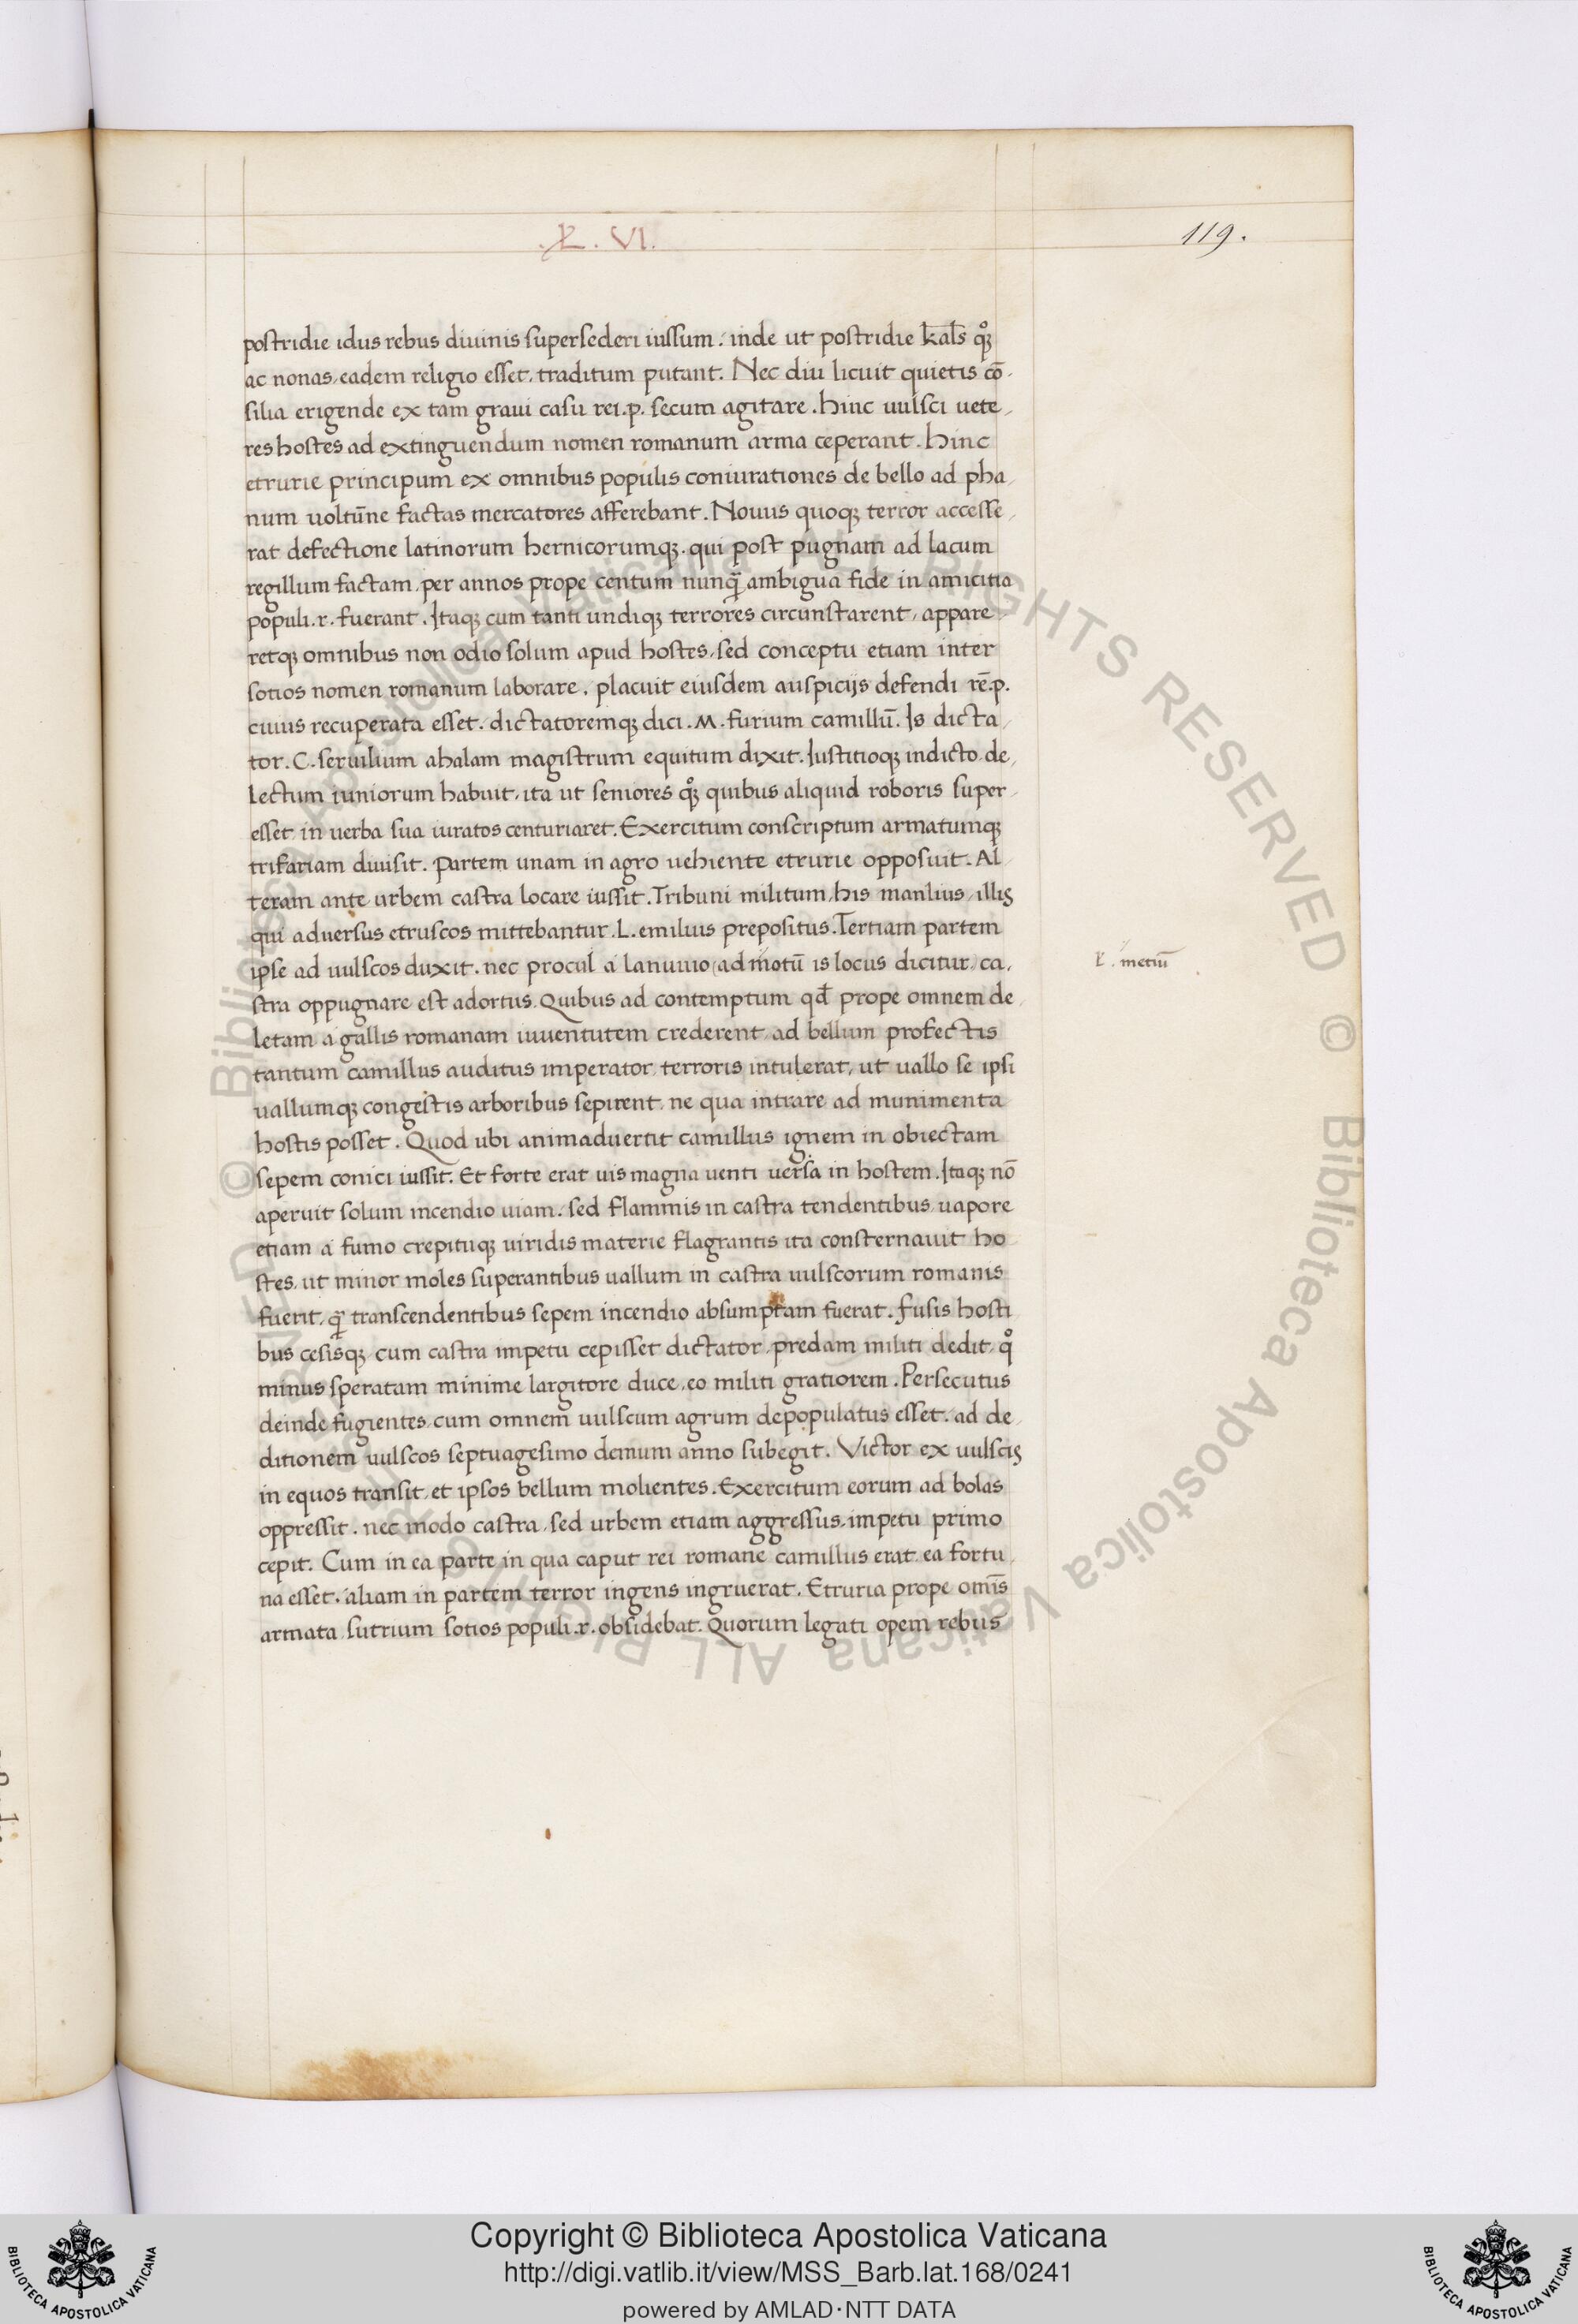 .L. VI.
119.
postridie idus rebus diuinis supersederi iussum. inde ut postridie kal̅s qͦꝫ
ac nonas, eadem religio esset, traditum putant. Nec diu licuit quietis co̅-
silia erigende ex tam graui casu rei.p. secum agitare. hinc uulsci uete-
res hostes ad extinguendum nomen romanum arma ceperant. hinc
etrurie principum ex omnibus populis coniurationes de bello ad pha-
num uoltu̅ne factas mercatores afferebant. Nouus quoqꝫ terror accesse-
rat defectione latinorum hernicorumqꝫ. qui post pugnam ad lacum
regillum factam, per annos prope centum nunq̅ ambigua fide in amicitia
populi.r. fuerant. Itaqꝫ cum tanti undiqꝫ terrores circunstarent, appare-
retqꝫ omnibus non odio solum apud hostes, sed conceptu etiam inter
sotios nomen romanum laborare. placuit eiusdem auspicijs defendi re̅.p.
cuius recuperata esset. dictatoremqꝫ dici .M. furium camillu̅. Is dicta-
tor. C. seruilium ahalam magistrum equitum dixit. Iustitioqꝫ indicto, de-
lectum iuniorum habuit, ita ut seniores qͦꝫ quibus aliquid roboris super-
esset in uerba sua iuratos centuriaret. Exercitum conscriptum armatumqꝫ
trifariam diuisit. Partem unam in agro uehiente etrurie opposuit. Al-
teram ante urbem castra locare iussit. Tribuni militum, his manlius, illis
qui aduersus etruscos mittebantur .L. emilius prepositus. Tertiam partem
ipse ad uulscos duxit. nec procul a lanuuio (ad motu̅ is locus dicitur) ca-
ł. metiu̅
stra oppugnare est adortus. Quibus ad contemptum qd̅ prope omnem de-
letam a gallis romanam iuuentutem crederent, ad bellum profectis
tantum camillus auditus imperator terroris intulerat, ut uallo se ipsi
uallumqꝫ congestis arboribus sepirent, ne qua intrare ad munimenta
hostis posset. Quod ubi animaduertit camillus ignem in obiectam
sepem conici iussit. Et forte erat uis magna uenti uersa in hostem. Itaqꝫ no̅
aperuit solum incendio uiam. sed flammis in castra tendentibus, uapore
etiam a fumo crepituqꝫ uiridis materie flagrantis ita consternauit ho-
stes, ut minor moles superantibus uallum in castra uulscorum romanis
fuerit, q̅ transcendentibus sepem incendio absumptam fuerat. Fusis hosti
bus cesisqꝫ cum castra impetu cepisset dictator, predam militi dedit, qͦ
minus speratam minime largitore duce, eo militi gratiorem. Persecutus
deinde fugientes, cum omnem uulscum agrum depopulatus esset. ad de-
ditionem uulscos septuagesimo demum anno subegit. Victor ex uulscis
in equos transit, et ipsos bellum molientes. Exercitum eorum ad bolas
oppressit. nec modo castra, sed urbem etiam aggressus, impetu primo
cepit. Cum in ea parte in qua caput rei romane camillus erat, ea fortu-
na esset. aliam in partem terror ingens ingruerat. Etruria prope omi̅s
armata, sutrium sotios populi.r. obsidebat. Quorum legati opem rebus
© Biblioteca Apostolica Vaticana ALL RIGHTS RESERVED © Biblioteca Apostolica Vaticana ALL RIGHTS RESERVED
Copyright © Biblioteca Apostolica Vaticana
http://digi.vatlib.it/view/MSS_Barb.lat.168/0241
powered by AMLAD·NTT DATA
BIBLIOTECA APOSTOLICA VATICANA
BIBLIOTECA APOSTOLICA VATICANA